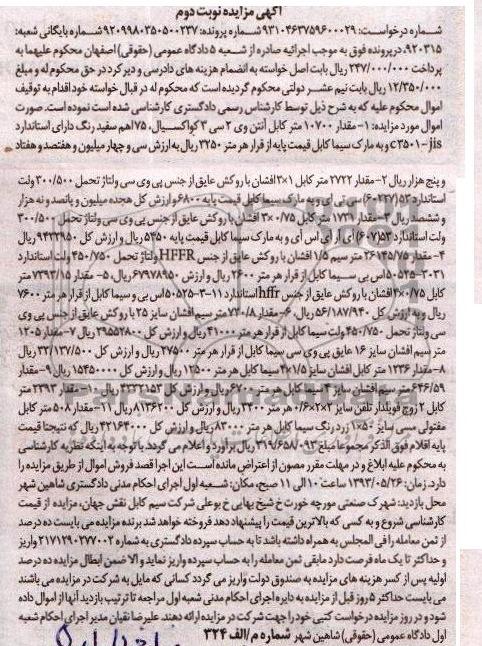 آگهی مزایده نوبت دوم
شماره درخواست: ۹۳۱۰۴۶۳۷۵۹۶۰۰۰۲۹ شماره پرونده: ۹۲۰۹۹۸۰۳۵۰۵۰۰۲۳۷ شماره بایگانی شعبه:
۹۲۰۳۱۵، در پرونده فوق به موجب اجرائیه صادره از شعبه ۵ دادگاه عمومی (حقوقی) اصفهان محکوم علیهما به
پرداخت ۲۴۷/۰۰۰/۰۰۰ ریال بابت اصل خواسته به انضمام هزینه های دادرسی و دیرکرد در حق محکوم له و مبلغ
۱۲/۳۵۰/۰۰۰ ریال بابت نیم عشر دولتی محکوم گردیده است که محکوم له در قبال خواسته خود اقدام به توقیف
اموال محکوم علیه که به شرح ذیل توسط کارشناس رسمی دادگستری کارشناسی شده است نموده است. صورت
اموال مورد مزایده: ۱- مقدار ۱۰۷۰۰ متر کابل آنتن وی ۲ سی ۳ کواکسیال، ۷۵ اهم سفید رنگ دارای استاندارد
c۳۵۰۱-jis و به مارک سیما کابل قیمت پایه از قرار هر متر ۳۲۵۰ ریال به ارزش سی و چهار میلیون و هفتصد و هفتاد
و پنج هزار ریال ۲- مقدار ۲۷۲۲ متر کابل ۱×۳ افشان با روکش عایق از جنس پی وی سی ولتاژ تحمل ۳۰۰/۵۰۰ ولت
استاندارد ۵۳(۶۰۷) سی تی ای و به مارک سیما کابل قیمت پایه ۶۸۰۰ و ارزش کل هجده میلیون و پانصد و نه هزار
و ششصد ریال ۳- مقدار ۱۷۳۹ متر کابل ۰/۷۵×۳ افشان با روکش عایق از جنس پی وی سی ولتاژ تحمل ۳۰۰/۵۰۰
ولت استاندارد ۵۳(۶۰۷) آی آر ای اس آی و به مارک سیما کابل قیمت پایه ۵۳۵۰ ریال و ارزش کل ۹۴۳۳۹۵۰ ریال
۴- مقدار ۲۶۱۴۵/۷۵ متر سیم ۱/۵ افشان با روکش عایق از جنس HFFR ولتاژ تحمل ۴۵۰/۷۵۰ ولت استاندارد
۵۰۵۲۵-۳-۳۱ اس بی سیما کابل از قرار هر متر ۲۶۰۰ ریال و ارزش ۶۷۹۷۸۹۵۰ ریال، ۵- مقدار ۷۳۹۳/۱۵ متر
کابل ۰/۷۵×۴ افشان با روکش عایق از جنس hffr استاندارد ۱۱-۳-۵۰۵۲۵ اس بی و سیما کابل از قرار هر متر ۷۶۰۰
ریال و به ارزش کل ۵۶/۱۸۷/۹۴۰ ریال، ۶- مقدار ۷۲۰/۸ متر سیم افشان سایز ۲۵ با روکش عایق از جنس پی وی
سی ولتاژ تحمل ۴۵۰/۷۵۰ ولت سیما کابل از قرار هر متر ۴۱۰۰۰ ریال و ارزش کل ۲۹۵۵۲۸۰۰ ریال ۷- مقدار ۱۲۰۵
متر سیم افشان سایز ۱۶ عایق پی وی سی سیما کابل از قرار هر متر ۲۷۵۰۰ ریال و ارزش کل ۳۳/۱۳۷/۵۰۰ ریال
۸- مقدار ۱۲۳۶ متر کابل افشان سایز ۱/۵×۴ سیما کابل از قرار هر متر ۱۲۵۰۰ ریال و ارزش کل ۱۵۴۵۰۰۰۰ ریال ۹- مقدار
۶۴۶/۵۹ متر سیم افشان سایز ۴ سیما کابل هر متر ۶۷۰۰ ریال و ارزش کل ۴۳۳۲۱۵۳ ریال ۱۰- مقدار ۲۳۹۳ متر
کابل ۲ زوج فویلدار تلفن سایز ۲×۲×۰/۶ هر متر ۳۴۰۰ ریال و ارزش کل ۸۱۳۶۲۰۰ ریال ۱۱- مقدار ۵۰۸ متر کابل
مفتولی مسی سایز ۵۰×۱ زرد رنگ سیما کابل هر متر ۸۳۰۰۰ ریال و ارزش کل ۴۲۱۶۴۰۰۰ ریال که نتیجتا قیمت
پایه اقلام فوق الذکر مجموعا مبلغ ۳۱۹/۶۵۸/۰۹۳ ریال برآورد و اعلام می گردد. با توجه به اینکه نظریه کارشناسی
به محکوم علیه ابلاغ و در مهلت مقرر مصون از اعتراض مانده است این اجرا قصد فروش اموال از طریق مزایده را
دارد. زمان: ۱۳۹۳/۰۵/۲۶ ساعت ۱۰ الی ۱۱ صبح، مکان: شعبه اول اجرای احکام مدنی دادگستری شاهین شهر
محل بازدید: شهرک صنعتی مورچه خورت خ شیخ بهایی خ بوعلی شرکت سیم کابل نقش جهان، مزایده از قیمت
کارشناسی شروع و به کسی که بالاترین قیمت را پیشنهاد دهد فروخته خواهد شد برنده مزایده می بایست ده درصد
از ثمن معامله را فی المجلس به همراه داشته باشد تا به حساب سپرده دادگستری به شماره ۲۱۷۱۲۹۰۳۷۷۰۰۲ واریز
و حداکثر تا یک ماه فرصت دارد مابقی ثمن معامله را به حساب سپرده واریز نماید و الا ضمن ابطال مزایده ده درصد
اولیه پس از کسر هزینه های مزایده به صندوق دولت واریز می گردد کسانی که مایل به شرکت در مزایده می باشند
می بایست حداکثر ۵ روز قبل از مزایده به دایره اجرای احکام مدنی شعبه اول مراجعه تا ترتیب بازدید آنها از اموال داده
شود و در روز مزایده درخواست کتبی خود را جهت شرکت در مزایده ارائه دهند. علیرضا نقیان مدیر اجرای احکام شعبه
اول دادگاه عمومی (حقوقی) شاهین شهر شماره م/الف ۳۲۴